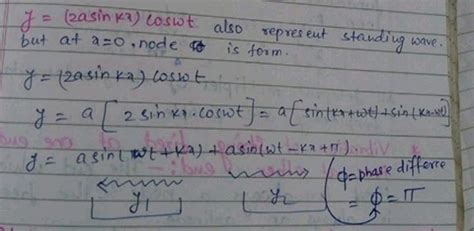 y = (2a sin kx) coswt also represent standing wave.
but at x=0, node is form.
y = (2a sin kx) coswt
y = a [ 2 sin kx. coswt ] = a [ sin(kx+wt) + sin(kx-wt) ]
y = a sin(wt + kx) + a sin(wt - kx + π)
y₁ y₂ ( ϕ = phase differce
= ϕ = π